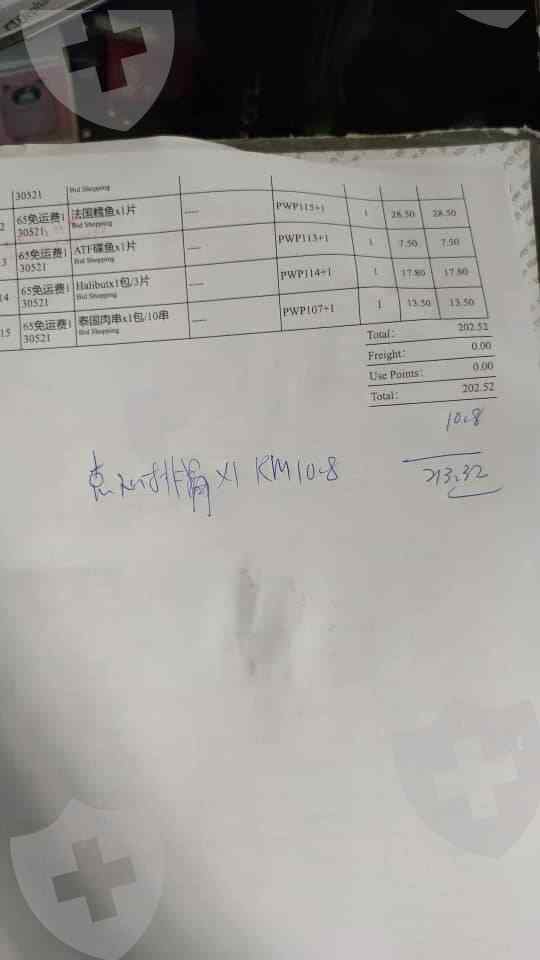 30521 Bid Shopping
2 65免运费1 30521 法国鳕鱼x1片 Bid Shopping ---- PWP115+1 1 28.50 28.50
3 65免运费1 30521 ATF碟鱼x1片 Bid Shopping ---- PWP113+1 1 7.50 7.50
14 65免运费1 30521 Halibutx1包/3片 Bid Shopping ---- PWP114+1 1 17.80 17.80
15 65免运费1 30521 泰国肉串x1包/10串 Bid Shopping ---- PWP107+1 1 13.50 13.50
Total: 202.52
Freight: 0.00
Use Points: 0.00
Total: 202.52
10.8
排骨 X1 RM10.8
213.32